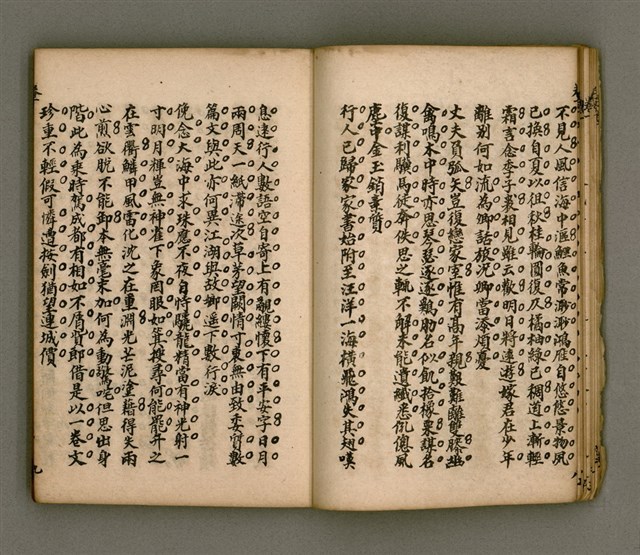 不見人風信海中漚鯉魚常渺渺鴻雁自悠悠景物夙
已換自夏以徂秋桂輪圓復仄橘柚綠已稠道上漸輕
霜言念季子裘相見雖云歡明日將遠遊嫁君在少年
離別何如流為卿話旅況卿當添煩憂
丈夫員弧矢豈復戀家室惟有高年親艱難離雙膝幽
禽鳴木中時亦思琴瑟逐逐鷄肋名似飢拾橡栗謀名
復謀利驥馬徒奔佚思之軌不解未能遺纖悉侘傯風
塵中金玉銷業質
行人已歸家家書始附至汪洋一海橫飛鴻失其翅嘆
息達行人數語空自寄上有覼縷懷下有平安字日月
兩周天一紙滯遠次草芳望闕情寸衷無由致委實數
篇文與此亦何異江湖與故鄉遥下數行淚
俛念大海中求珠應不夜自恃驪龍精當有神光射一
寸明月輝豈無神雀下象罔眼如箕搜尋何能罷升之
在雲衢鱗甲風雷化沈之在重淵光芒泥塗藉得失兩
心煎欲脫不能卸本無毫末加何為動驚咤但思出身
階此為乘時駕成都有相如不屑貲郎借是以一卷文
珍重不輕假可憐遭按劍猶望連城價